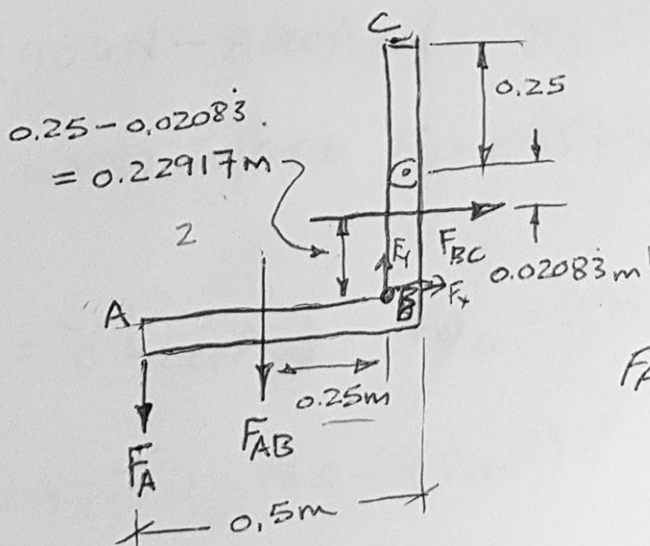 C
0.25
0.25 - 0.02083̇.
= 0.22917m
2
F_Y
F_BC
0.02083̇m
A
B
F_x
0.25m
F_A
F_AB
0.5m